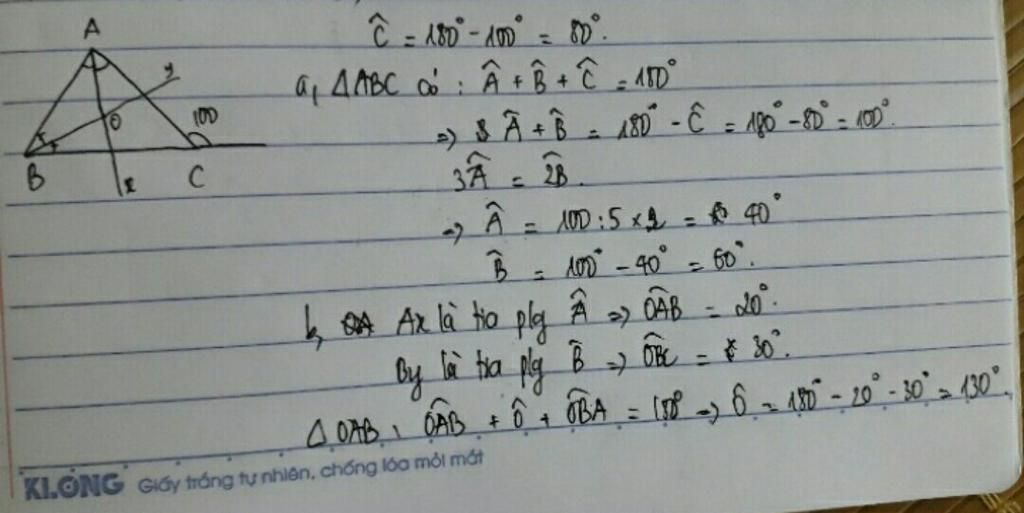 A
y
O
100
B
x
C
Ĉ = 180° - 100° = 80°.
a, △ABC có : Â + B̂ + Ĉ = 180°
=> Â + B̂ = 180° - Ĉ = 180° - 80° = 100°
3Â = 2B̂.
=> Â = 100 : 5 x 2 = 40°
B̂ = 100° - 40° = 60°.
b, Ax là tia plg  => OÂB = 20°.
By là tia plg B̂ => OB̂C = 30°.
△OAB, OÂB + Ô + OB̂A = 180° => Ô = 180° - 20° - 30° = 130°.
KLONG Giấy trắng tự nhiên, chống lóa mỏi mắt